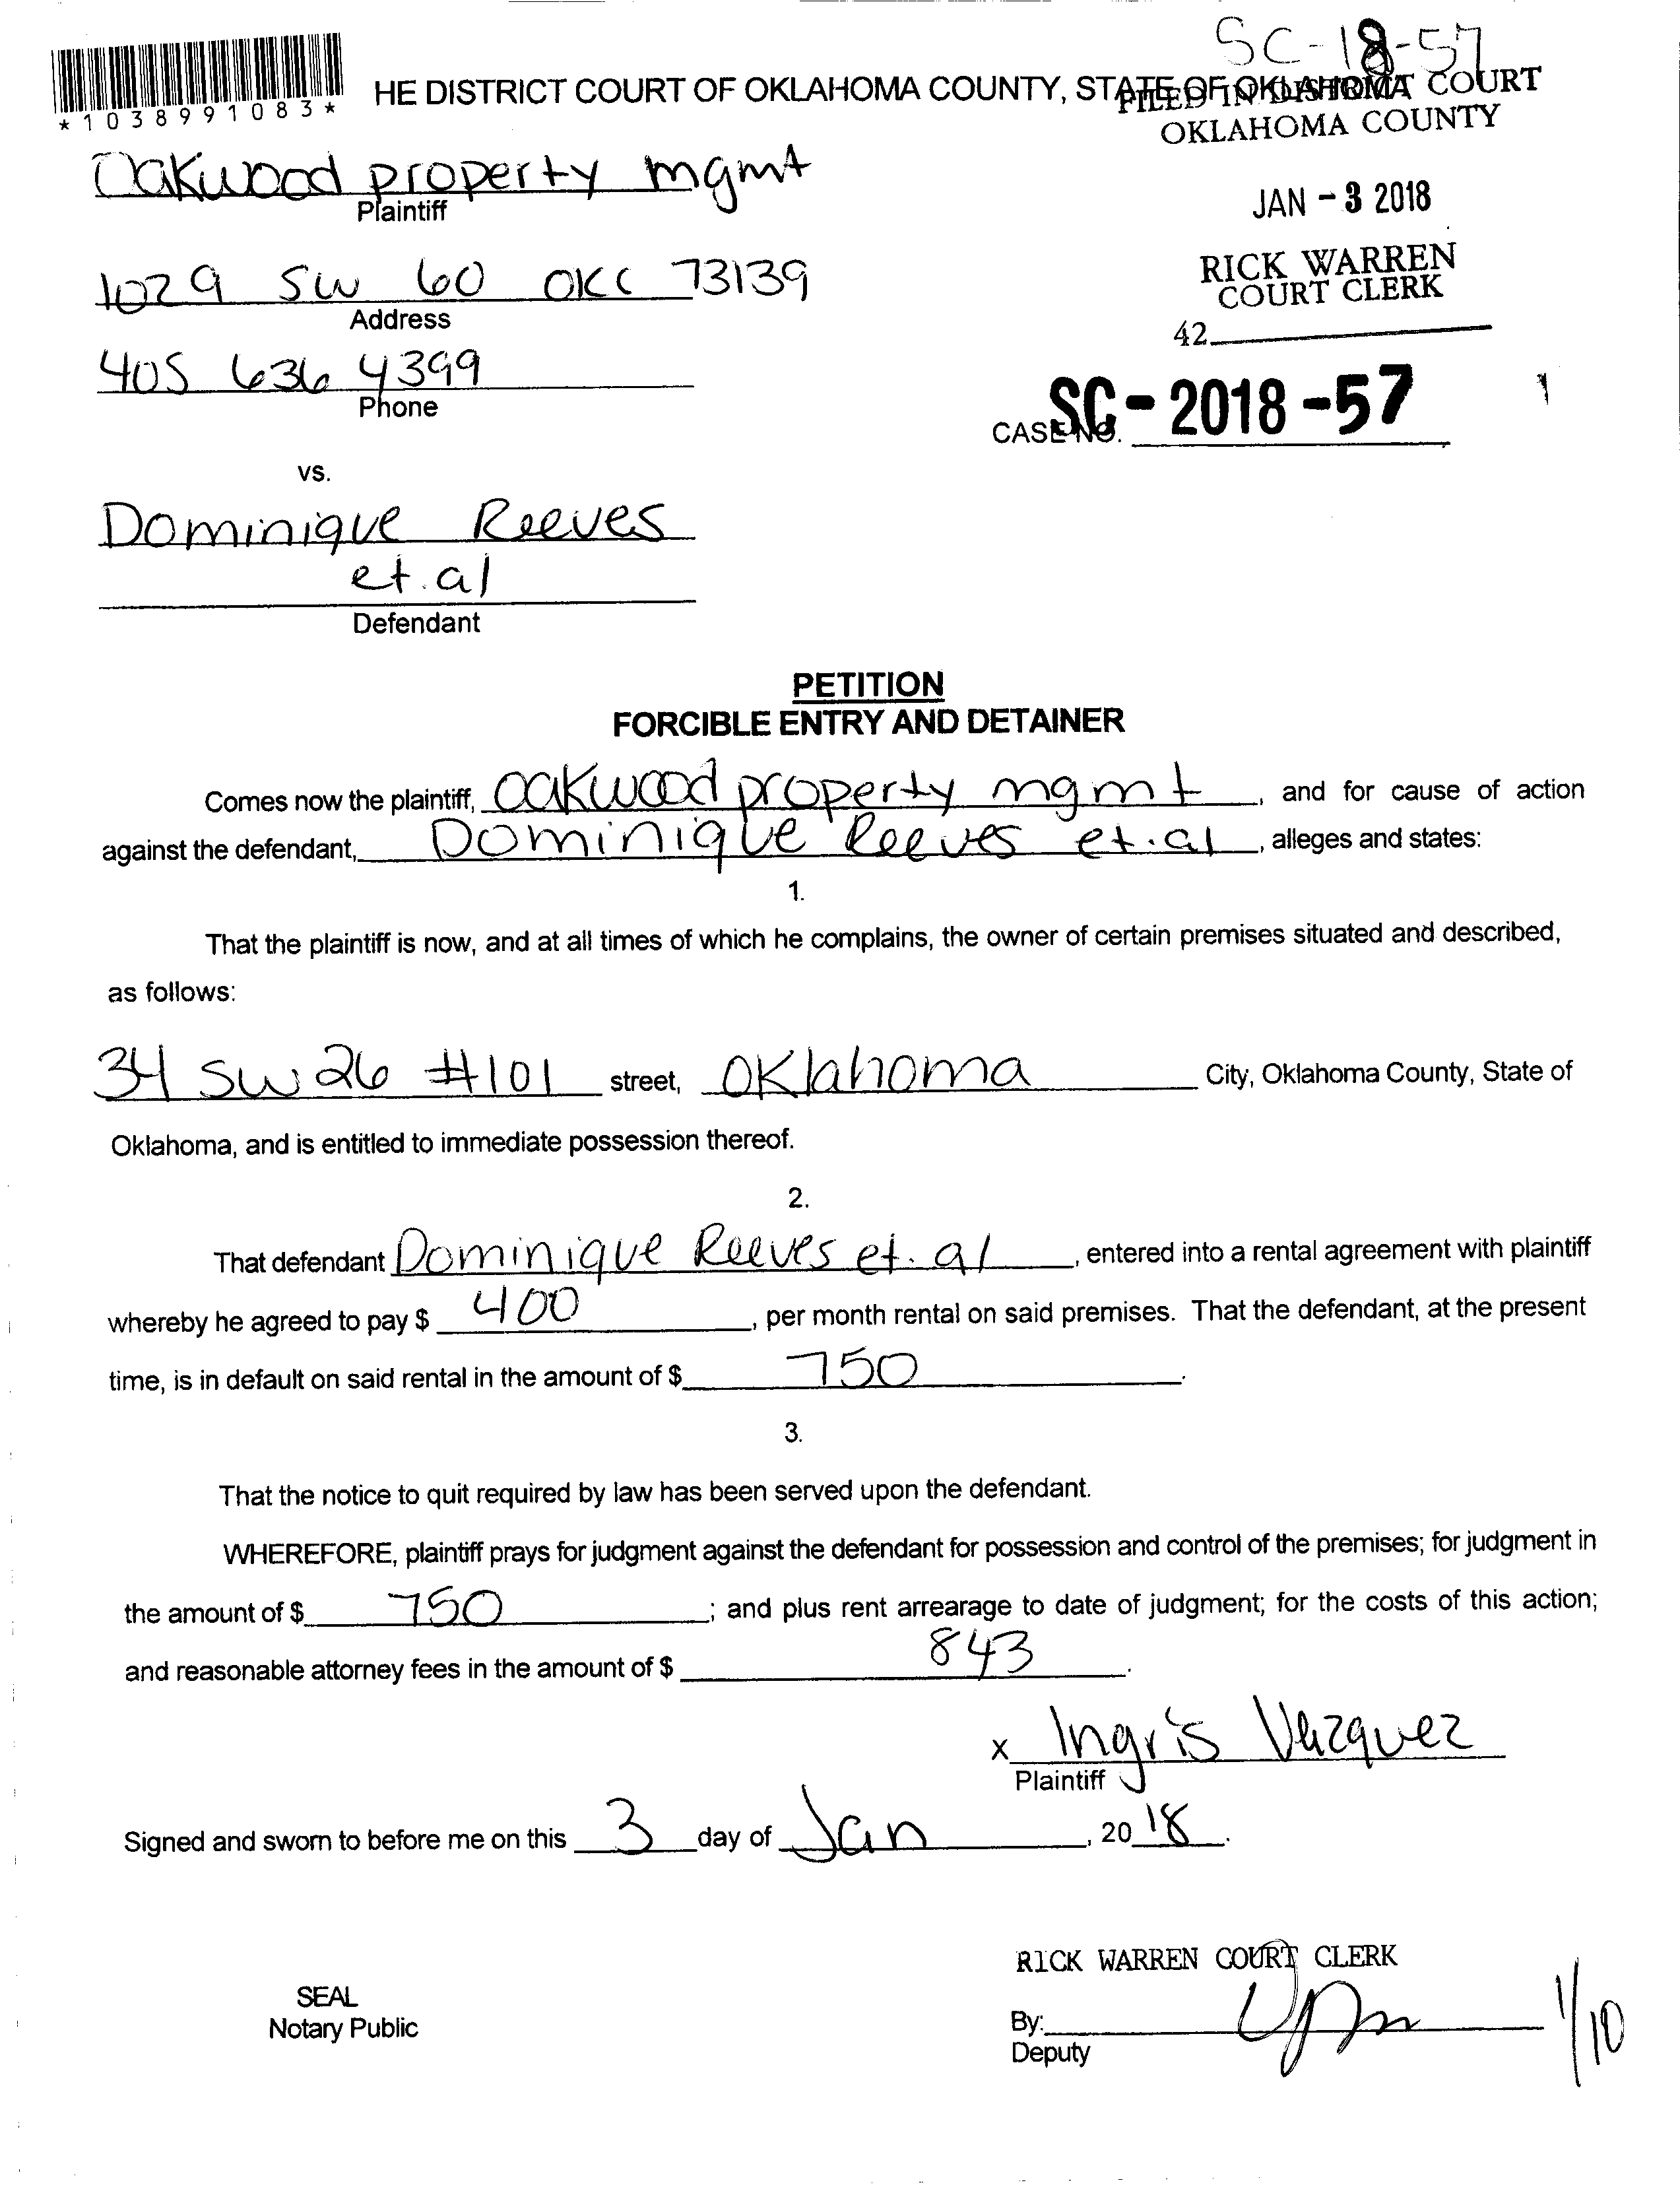 SC-18-57
*1038991083*
HE DISTRICT COURT OF OKLAHOMA COUNTY, STATE OF OKLAHOMA
FILED IN DISTRICT COURT
OKLAHOMA COUNTY
Oakwood property mgmt
Plaintiff
JAN - 3 2018
1029 SW 60 OKC 73139
Address
RICK WARREN
COURT CLERK
42
405 636 4399
Phone
CASE NO. SC- 2018 -57
vs.
Dominique Reeves
et.al
Defendant
PETITION
FORCIBLE ENTRY AND DETAINER
Comes now the plaintiff, Oakwood property mgmt, and for cause of action
against the defendant, Dominique Reeves et.al, alleges and states:
1.
That the plaintiff is now, and at all times of which he complains, the owner of certain premises situated and described,
as follows:
34 SW 26 #101 street, Oklahoma City, Oklahoma County, State of
Oklahoma, and is entitled to immediate possession thereof.
2.
That defendant Dominique Reeves et. al, entered into a rental agreement with plaintiff
whereby he agreed to pay $ 400, per month rental on said premises. That the defendant, at the present
time, is in default on said rental in the amount of $ 750.
3.
That the notice to quit required by law has been served upon the defendant.
WHEREFORE, plaintiff prays for judgment against the defendant for possession and control of the premises; for judgment in
the amount of $ 750; and plus rent arrearage to date of judgment; for the costs of this action;
and reasonable attorney fees in the amount of $ 843.
x Ingris Vazquez
Plaintiff
Signed and sworn to before me on this 3 day of Jan, 20 18.
RICK WARREN COURT CLERK
SEAL
Notary Public
By:
Deputy
1/10